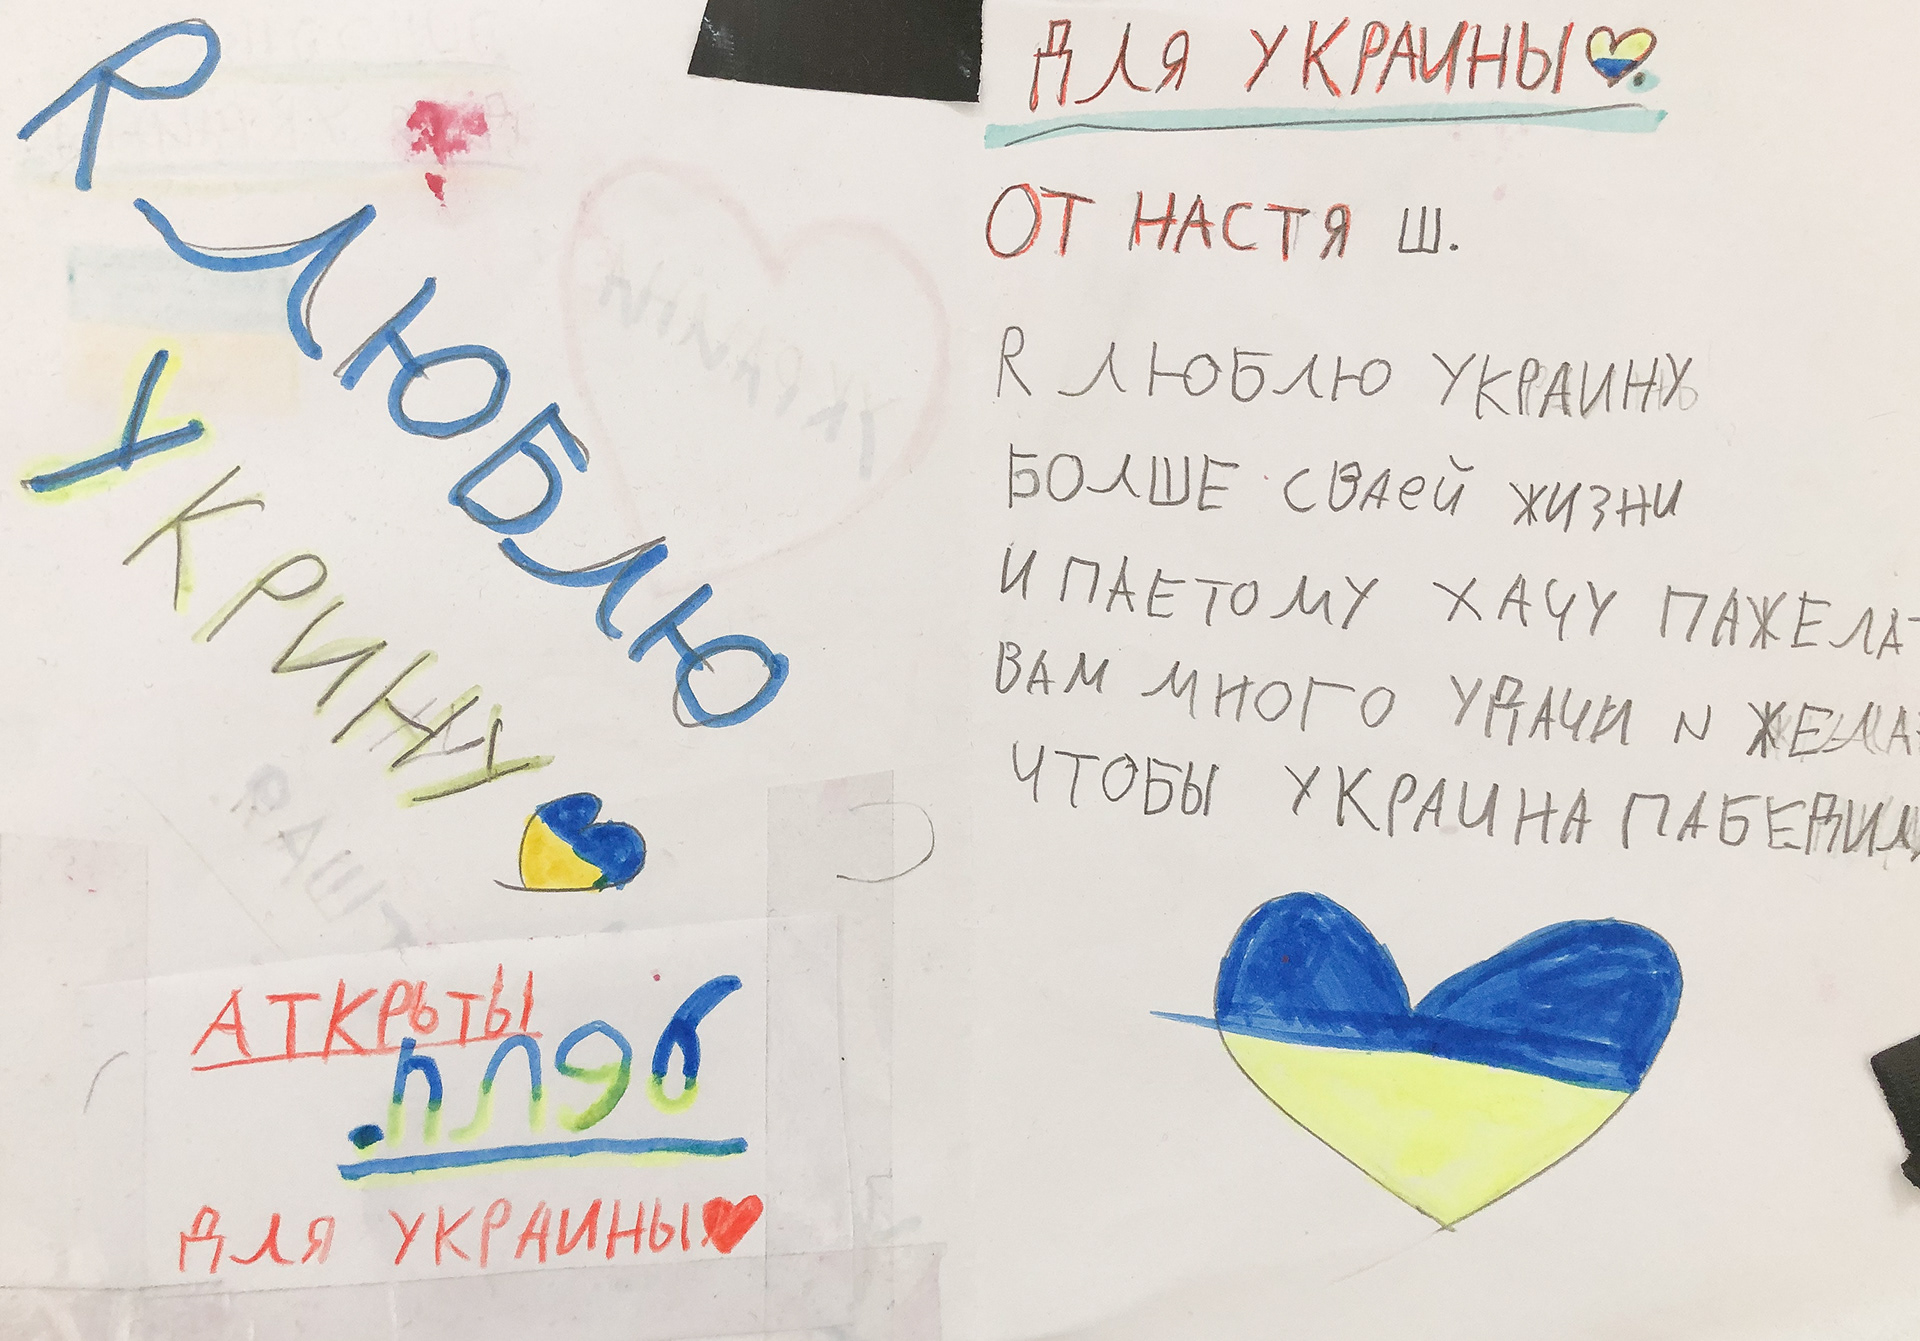 R ЛЮБЛЮ
УКРИНУ
АТКРЫТЫ
ДЛЯ УКРАИНЫ
ДЛЯ УКРАИНЫ
ОТ НАСТЯ Ш.
R ЛЮБЛЮ УКРАИНУ
БОЛШЕ СВАЕЙ ЖИЗНИ
И ПАЕТОМУ ХАЧУ ПАЖЕЛАТ
ВАМ МНОГО УДАЧИ И ЖЕЛА
ЧТОБЫ УКРАИНА ПАБЕДИЛ